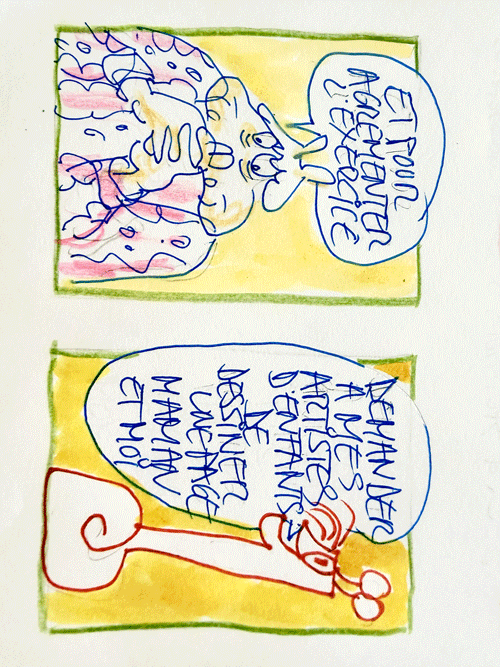 ET POUR
AGREMENTER
L'EXERCICE
DEMANDER
A MES
ARTISTES
D'ENFANTS
DE
DESSINER
UNE PAGE
MAMAN
ET MOI